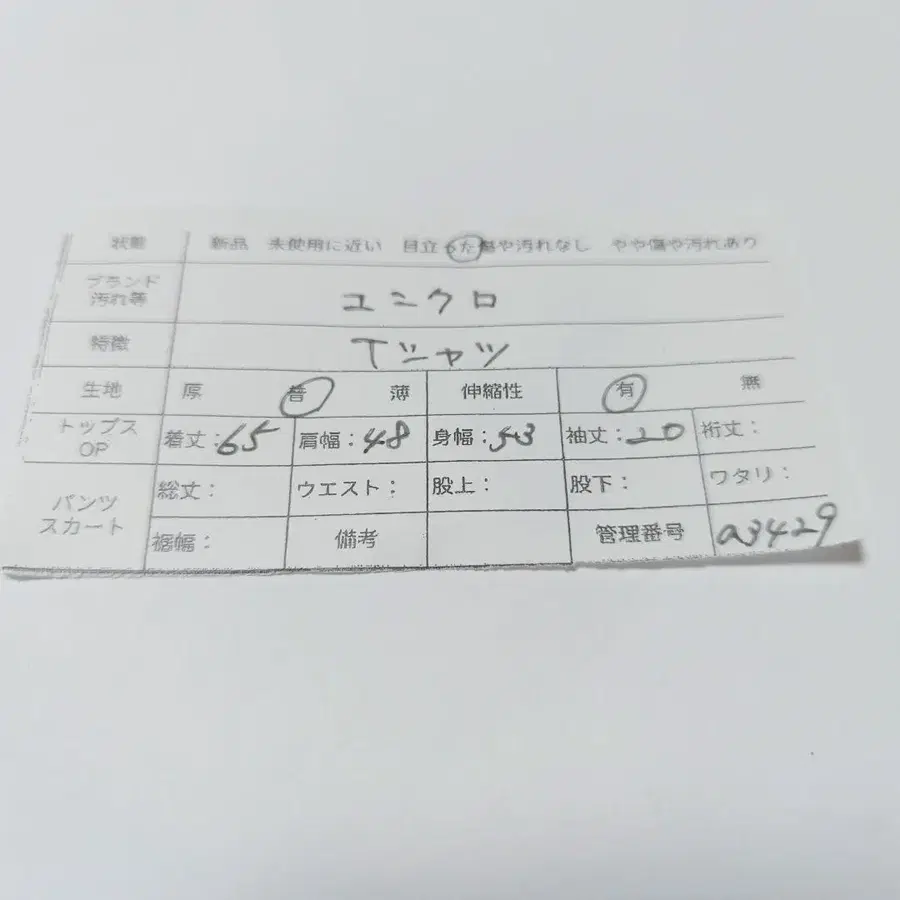 状態 新品 未使用に近い 目立った傷や汚れなし やや傷や汚れあり
ブランド
汚れ等
ユニクロ
特徴 Tシャツ
生地 厚 普 薄 伸縮性 有 無
トップス
OP
着丈:65 肩幅:48 身幅:53 袖丈:20 裄丈:
パンツ
スカート
総丈: ウエスト: 股上: 股下: ワタリ:
裾幅: 備考 管理番号 a3429